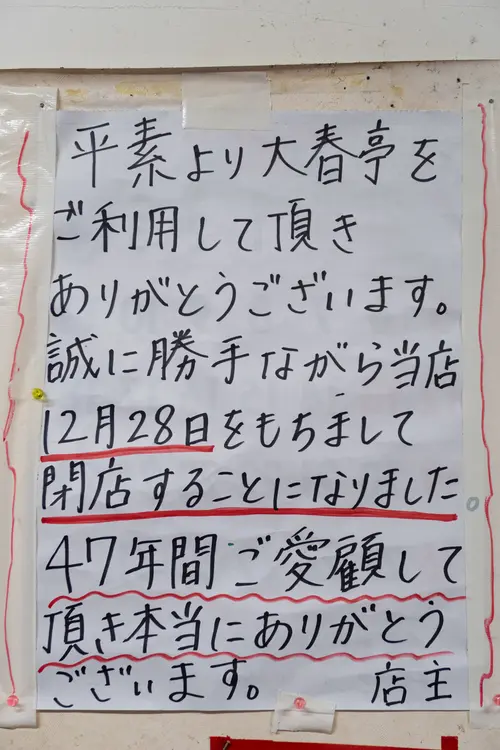 平素より大春亭を
ご利用して頂き
ありがとうございます。
誠に勝手ながら当店
12月28日をもちまして
閉店することになりました
47年間ご愛顧して
頂き本当にありがとう
ございます。 店主